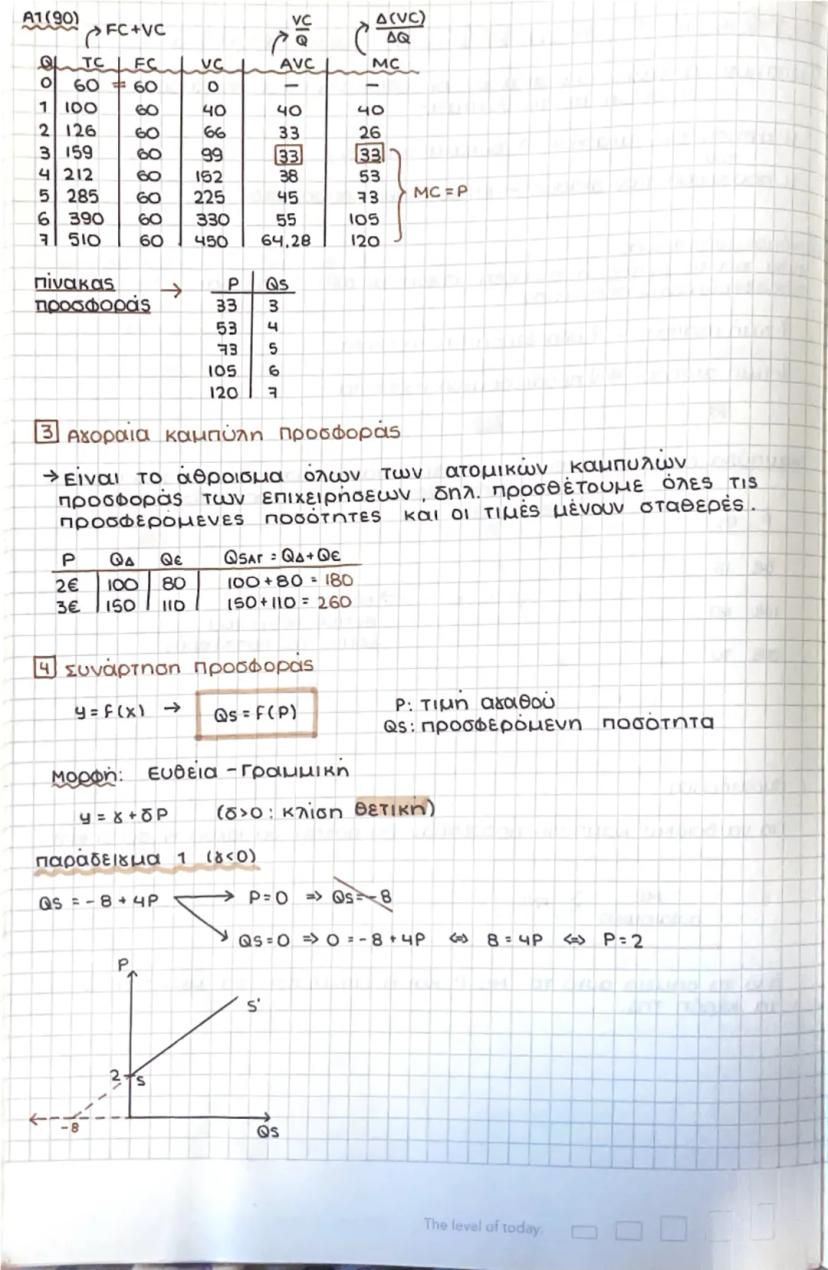 A1(90)
FC+VC
VC/Q
Δ(VC)/ΔQ
Q TC FC VC AVC MC
0 60 = 60 0 — —
1 100 60 40 40 40
2 126 60 66 33 26
3 159 60 99 33 33
4 212 60 152 38 53
5 285 60 225 45 73
6 390 60 330 55 105
7 510 60 450 64,28 120
MC = P
Πίνακας προσφοράς → P Qs
33 3
53 4
73 5
105 6
120 7
3 Αγοραία καμπύλη προσφοράς
→ Είναι το άθροισμα όλων των ατομικών καμπυλών
προσφοράς των επιχειρήσεων, δηλ. προσθέτουμε όλες τις
προσφερόμενες ποσότητες και οι τιμές μένουν σταθερές.
P QΔ QΕ QSΑΓ = QΔ+QΕ
2€ 100 80 100+80 = 180
3€ 150 110 150+110 = 260
4 Συνάρτηση προσφοράς
y = f(x) → Qs = f(P)
P: τιμή αγαθού
Qs: προσφερόμενη ποσότητα
Μορφή: Ευθεία - Γραμμική
y = γ + δP (δ>0: κλίση θετική)
Παράδειγμα 1 (γ<0)
Qs = -8 + 4P → P=0 => Qs=-8
Qs=0 => 0=-8+4P <=> 8=4P <=> P=2
P
S'
2 S
-8
Qs
The level of today.